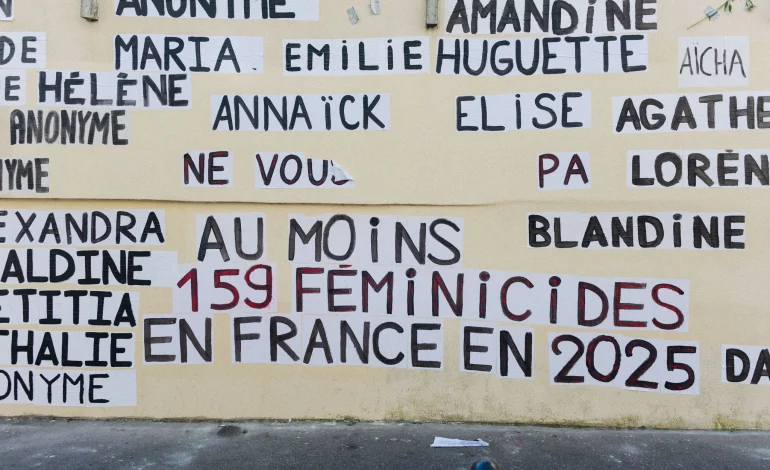 ANONYME AMANDINE
DE MARIA EMILIE HUGUETTE AÏCHA
E HÉLÈNE ANNAÏCK ELISE AGATHE
ANONYME
YME NE VOUS PA LORÈN
EXANDRA AU MOINS BLANDINE
ALDINE 159 FÉMINICIDES
ETITIA
THALIE EN FRANCE EN 2025 DA
ONYME